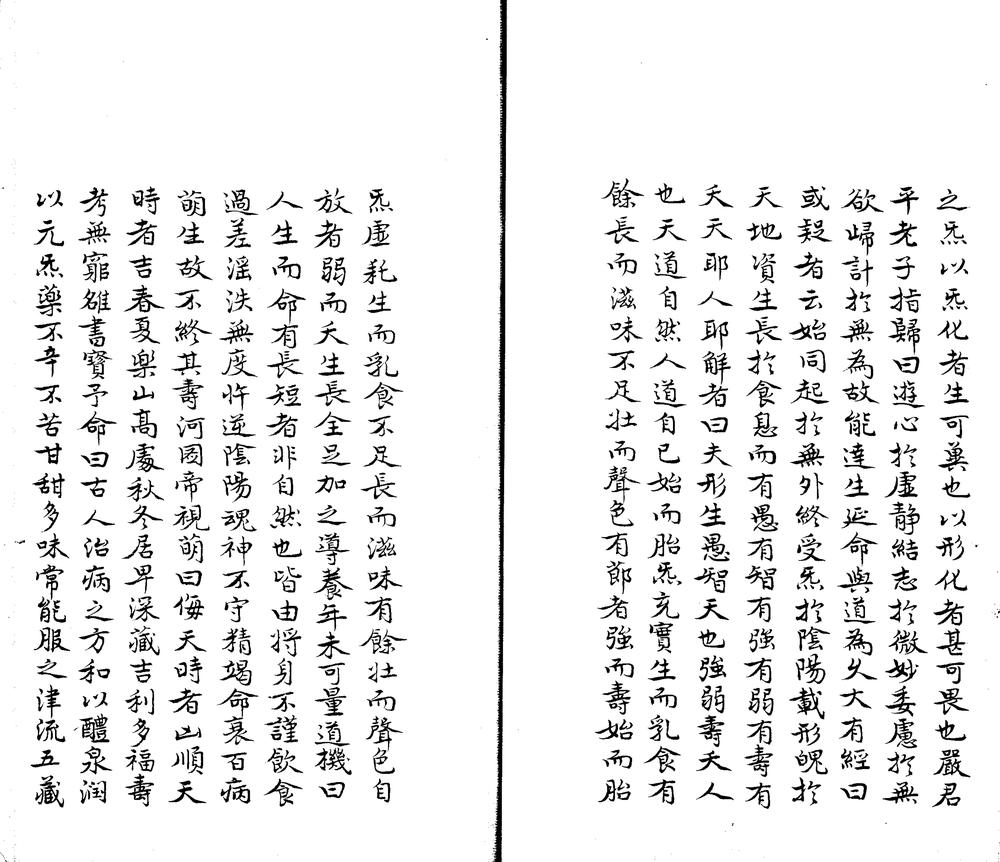 之炁以炁化者生可兾也以形化者甚可畏也嚴君
平老子指歸曰遊心於虛静結志於微妙委慮於無
欲歸計於無為故能達生延命與道為久大有經曰
或疑者云始同起於無外終受炁於陰陽載形魄於
天地資生長於食息而有愚有智有強有弱有壽有
夭天耶人耶解者曰夫形生愚智天也強弱壽夭人
也天道自然人道自己始而胎炁充實生而乳食有
餘長而滋味不足壯而聲色有節者強而壽始而胎
炁虛耗生而乳食不足長而滋味有餘壯而聲色自
放者弱而夭生長全足加之導養年未可量道機曰
人生而命有長短者非自然也皆由將身不謹飲食
過差滛泆無度忤逆陰陽魂神不守精竭命衰百病
萌生故不終其壽河圖帝視萌曰侮天時者凶順天
時者吉春夏樂山高處秋冬居卑深藏吉利多福壽
考無窮雒書寶予命曰古人治病之方和以醴泉潤
以元炁藥不辛不苦甘甜多味常能服之津流五藏